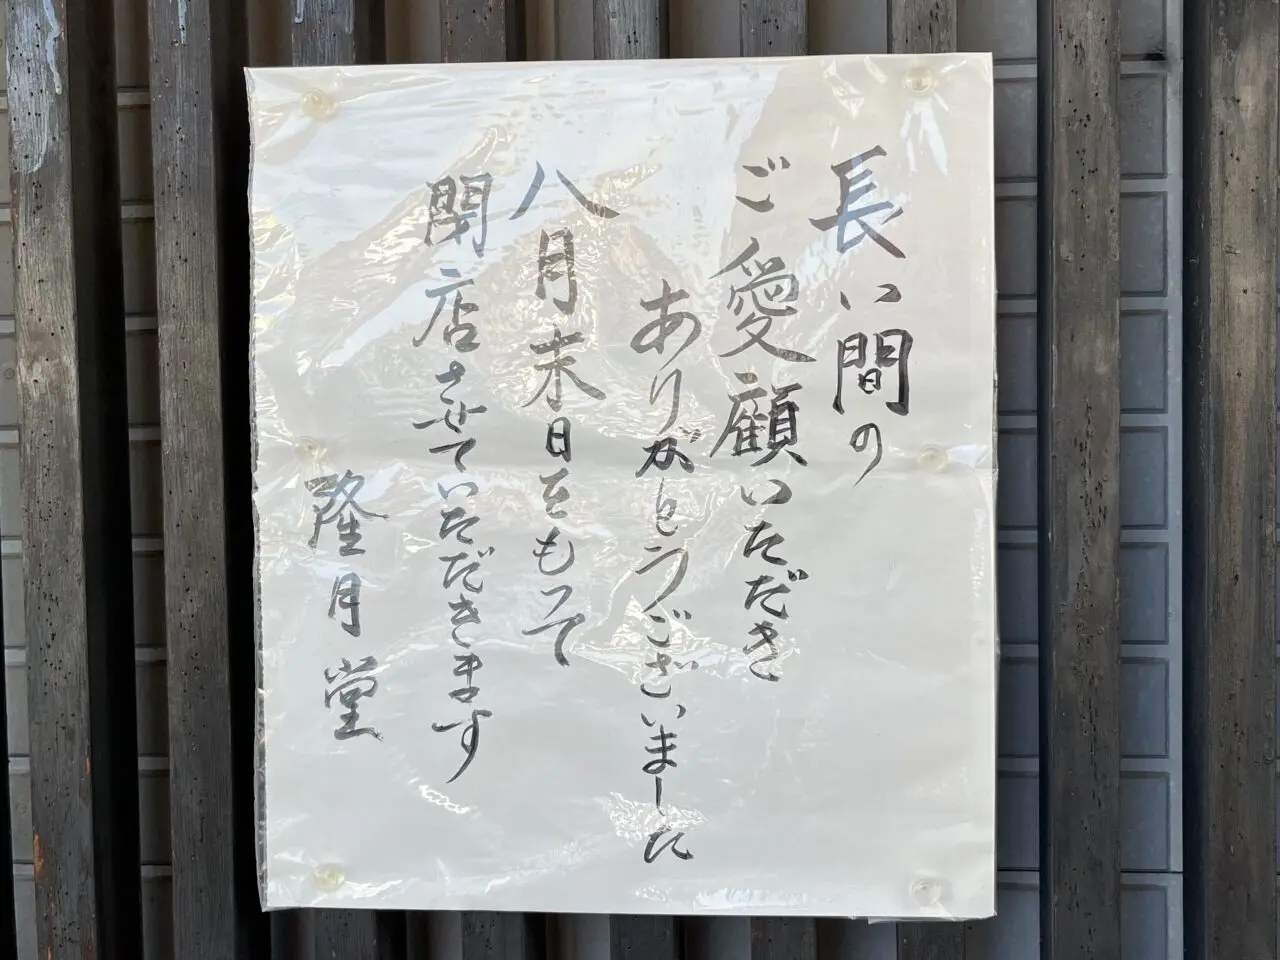 長い間の
ご愛顧いただき
ありがとうございました
八月末日をもって
閉店させていただきます
隆月堂